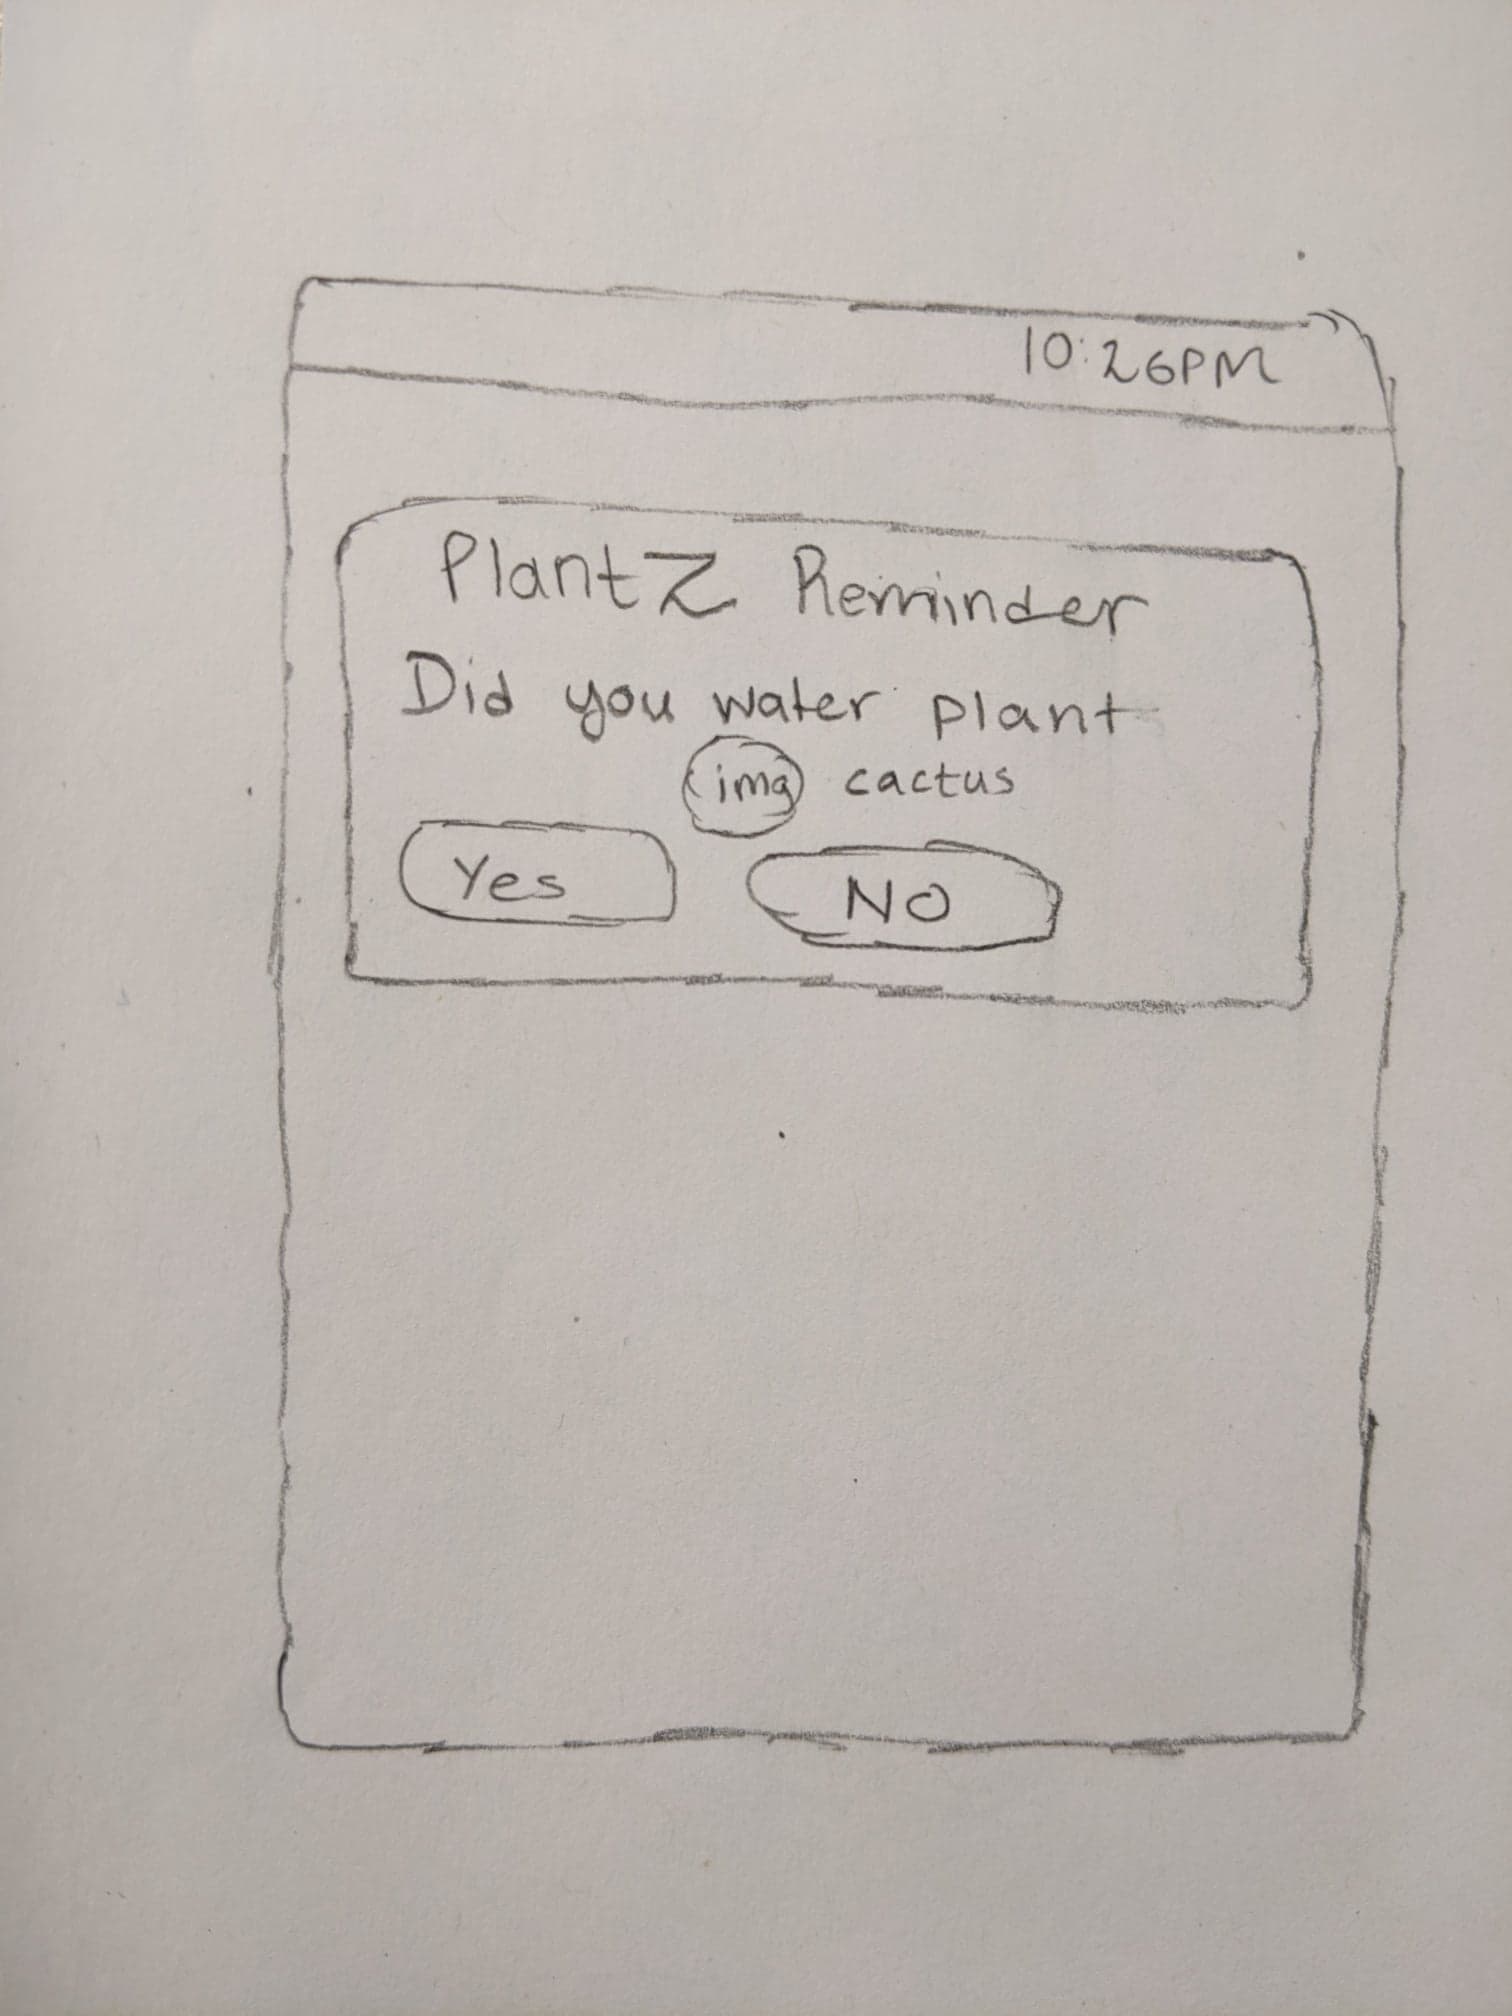 10:26PM
PlantZ Reminder
Did you water plant
img cactus
Yes NO